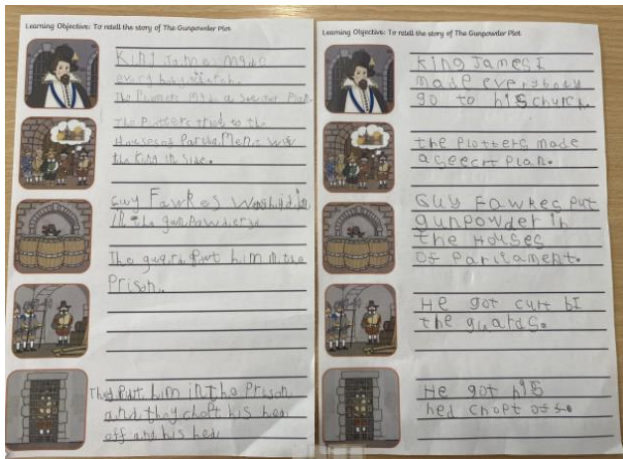 Learning Objective: To retell the story of The Gunpowder Plot
King James made
every
The a Plan.
The Plotters to the
Houses of with
the King in side.
Guy Fawkes
in the
The guard Put him in the
Prison.
They Put him in the Prison
and they chopt his hea
off and his hea
Learning Objective: To retell the story of The Gunpowder Plot
King James I
made everybody
go to his church.
the Plotters made
a seecrt Plan.
Guy Fawkes Put
gunpowder in
the Houses
of Parliament.
He got curt bI
the guards.
He got his
hed chopt off.